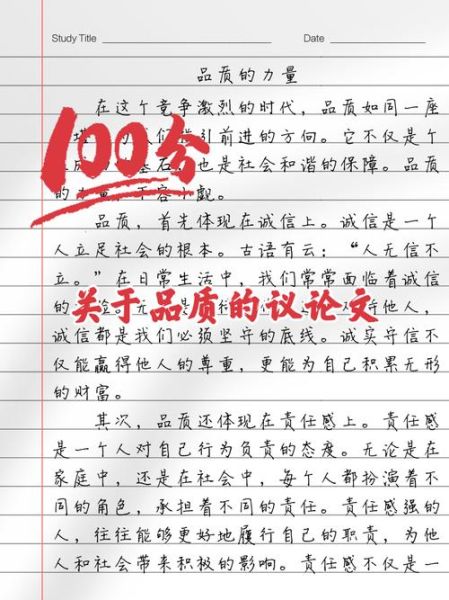 Study Title Date
品质的力量
在这个竞争激烈的时代，品质如同一座
100分
引前进的方向。它不仅是个
基石 也是社会和谐的保障。品质
的 不容小觑。
品质，首先体现在诚信上。诚信是一个
人立足社会的根本。古语有云：“人无信不
立。”在日常生活中，我们常常面临着诚信
的 他人，
关于品质的议论文
诚信都是我们必须坚守的底线。诚实守信不
仅能赢得他人的尊重，更能为自己积累无形
的财富。
其次，品质还体现在责任感上。责任感
是一个人对自己行为负责的态度。无论是在
家庭中，还是在社会中，每个人都扮演着不
同的角色，承担着不同的责任。责任感强的
人，往往能够更好地履行自己的职责，为他
人和社会带来积极的影响。责任感不仅是一